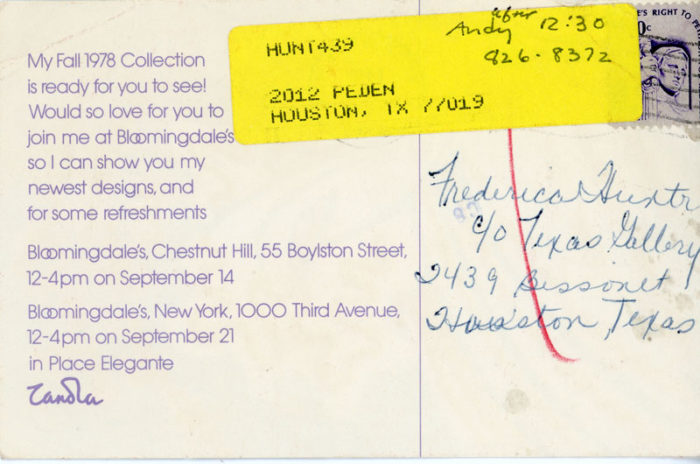 My Fall 1978 Collection
is ready for you to see!
Would so love for you to
join me at Bloomingdale's
so I can show you my
newest designs, and
for some refreshments
Bloomingdale's, Chestnut Hill, 55 Boylston Street,
12-4pm on September 14
Bloomingdale's, New York, 1000 Third Avenue,
12-4pm on September 21
in Place Elegante
Zandra
after
Andy 12:30
826-8372
HUNT439
2012 PEDEN
HOUSTON, TX 77019
E'S RIGHT TO PE
0c
Frederica Huntr
c/o Texas Gallery
2439 Bissonet
Houston, Texas